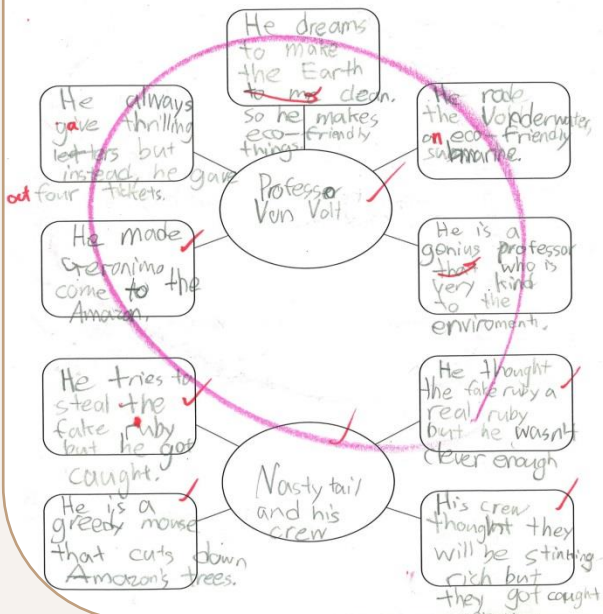 He dreams
to make
the Earth
to my clean.
so he makes
eco-friendly
things.
He always
gave thrilling
letters but
instead, he gave
out four tickets.
He rode
the Vonderwater,
an eco-friendly
submarine.
Professor
Von Volt
He made
Geronimo
come to the
Amazon.
He is a
genius professor
that who is
very kind
to the
enviroment.
He tries to
steal the
fake ruby
but he got
caught.
He thought
the fake ruby a
real ruby
but he wasn't
clever enough
Nasty tail
and his
crew
He is a
greedy mouse
that cuts down
Amazon's trees.
His crew
thought they
will be stinking
rich but
they got caught